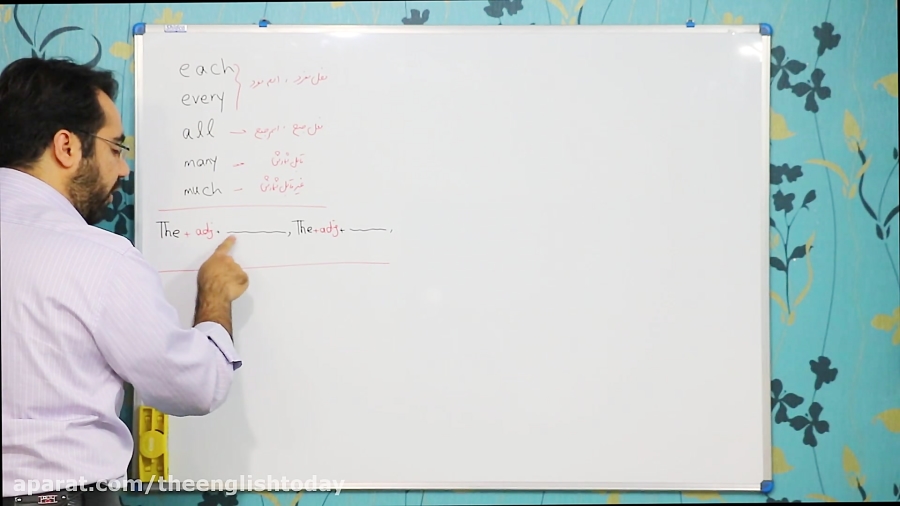 each
every
فعل مفرد، اسم مفرد
all → فعل جمع، اسم جمع
many → قابل شمارش
much – غیر قابل شمارش
The + adj + ______, The + adj + ______.
aparat.com/theenglishtoday